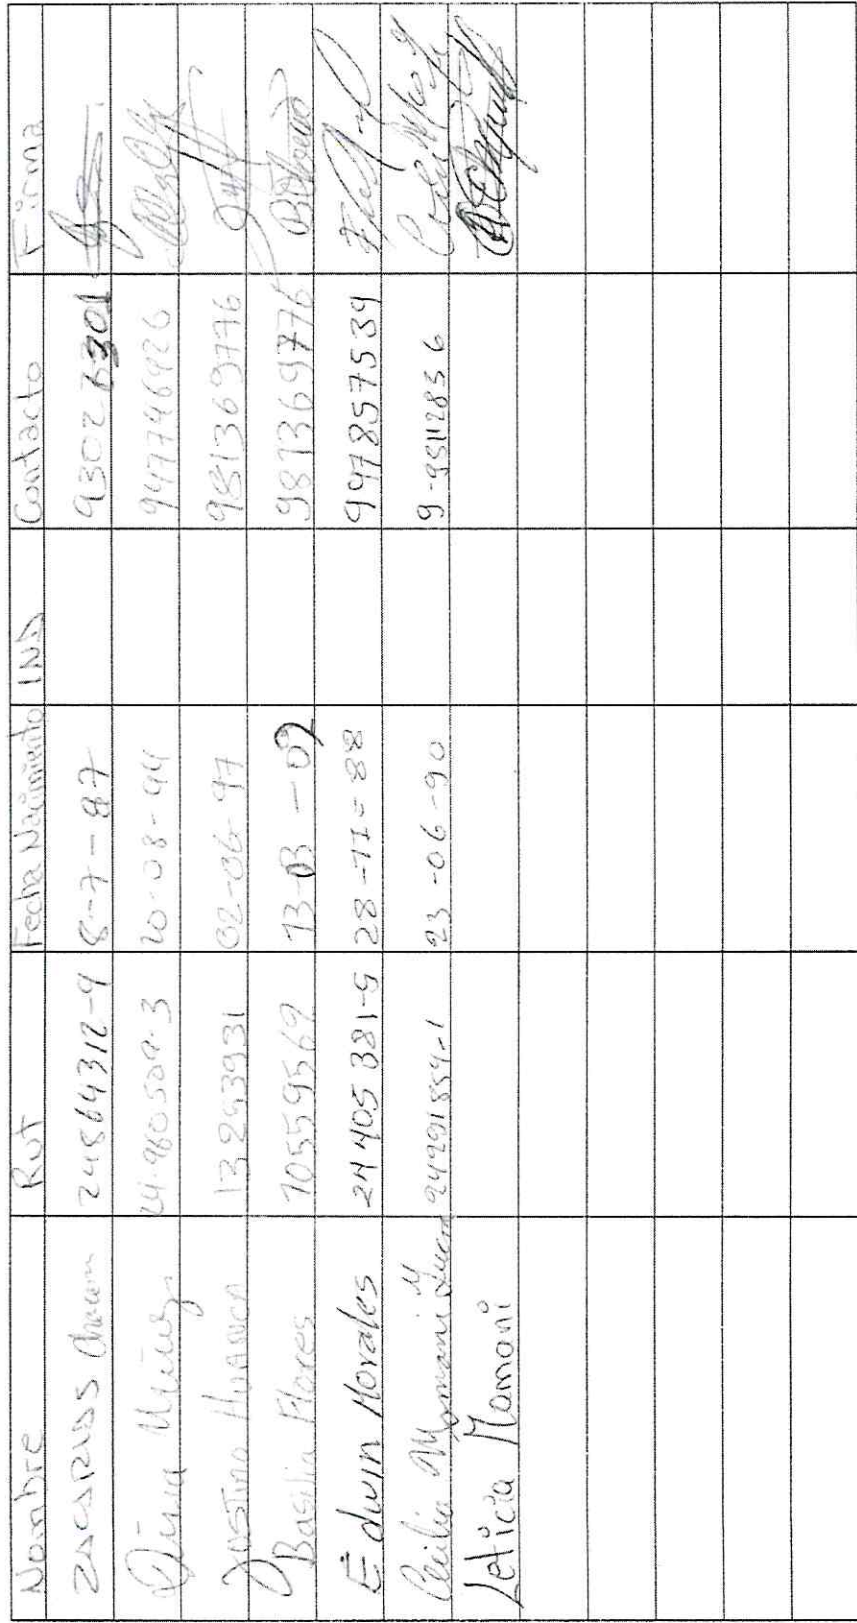 Nombre Rut Fecha Nacimiento IND Contacto Firma
ZACARIAS Chacon 24864312-9 8-7-87
Muñoz 24.960.509-3 20-08-94 947746926
JUSTINO HUANCA 13293931 02-06-97 981369776
Basilia Flores 10559569 13-03-02 981369776
Edwin Morales 24405381-5 28-11=88 997857539
Cecilia Mamani 24291854-1 23-06-90 9-95112856
Leticia Mamani